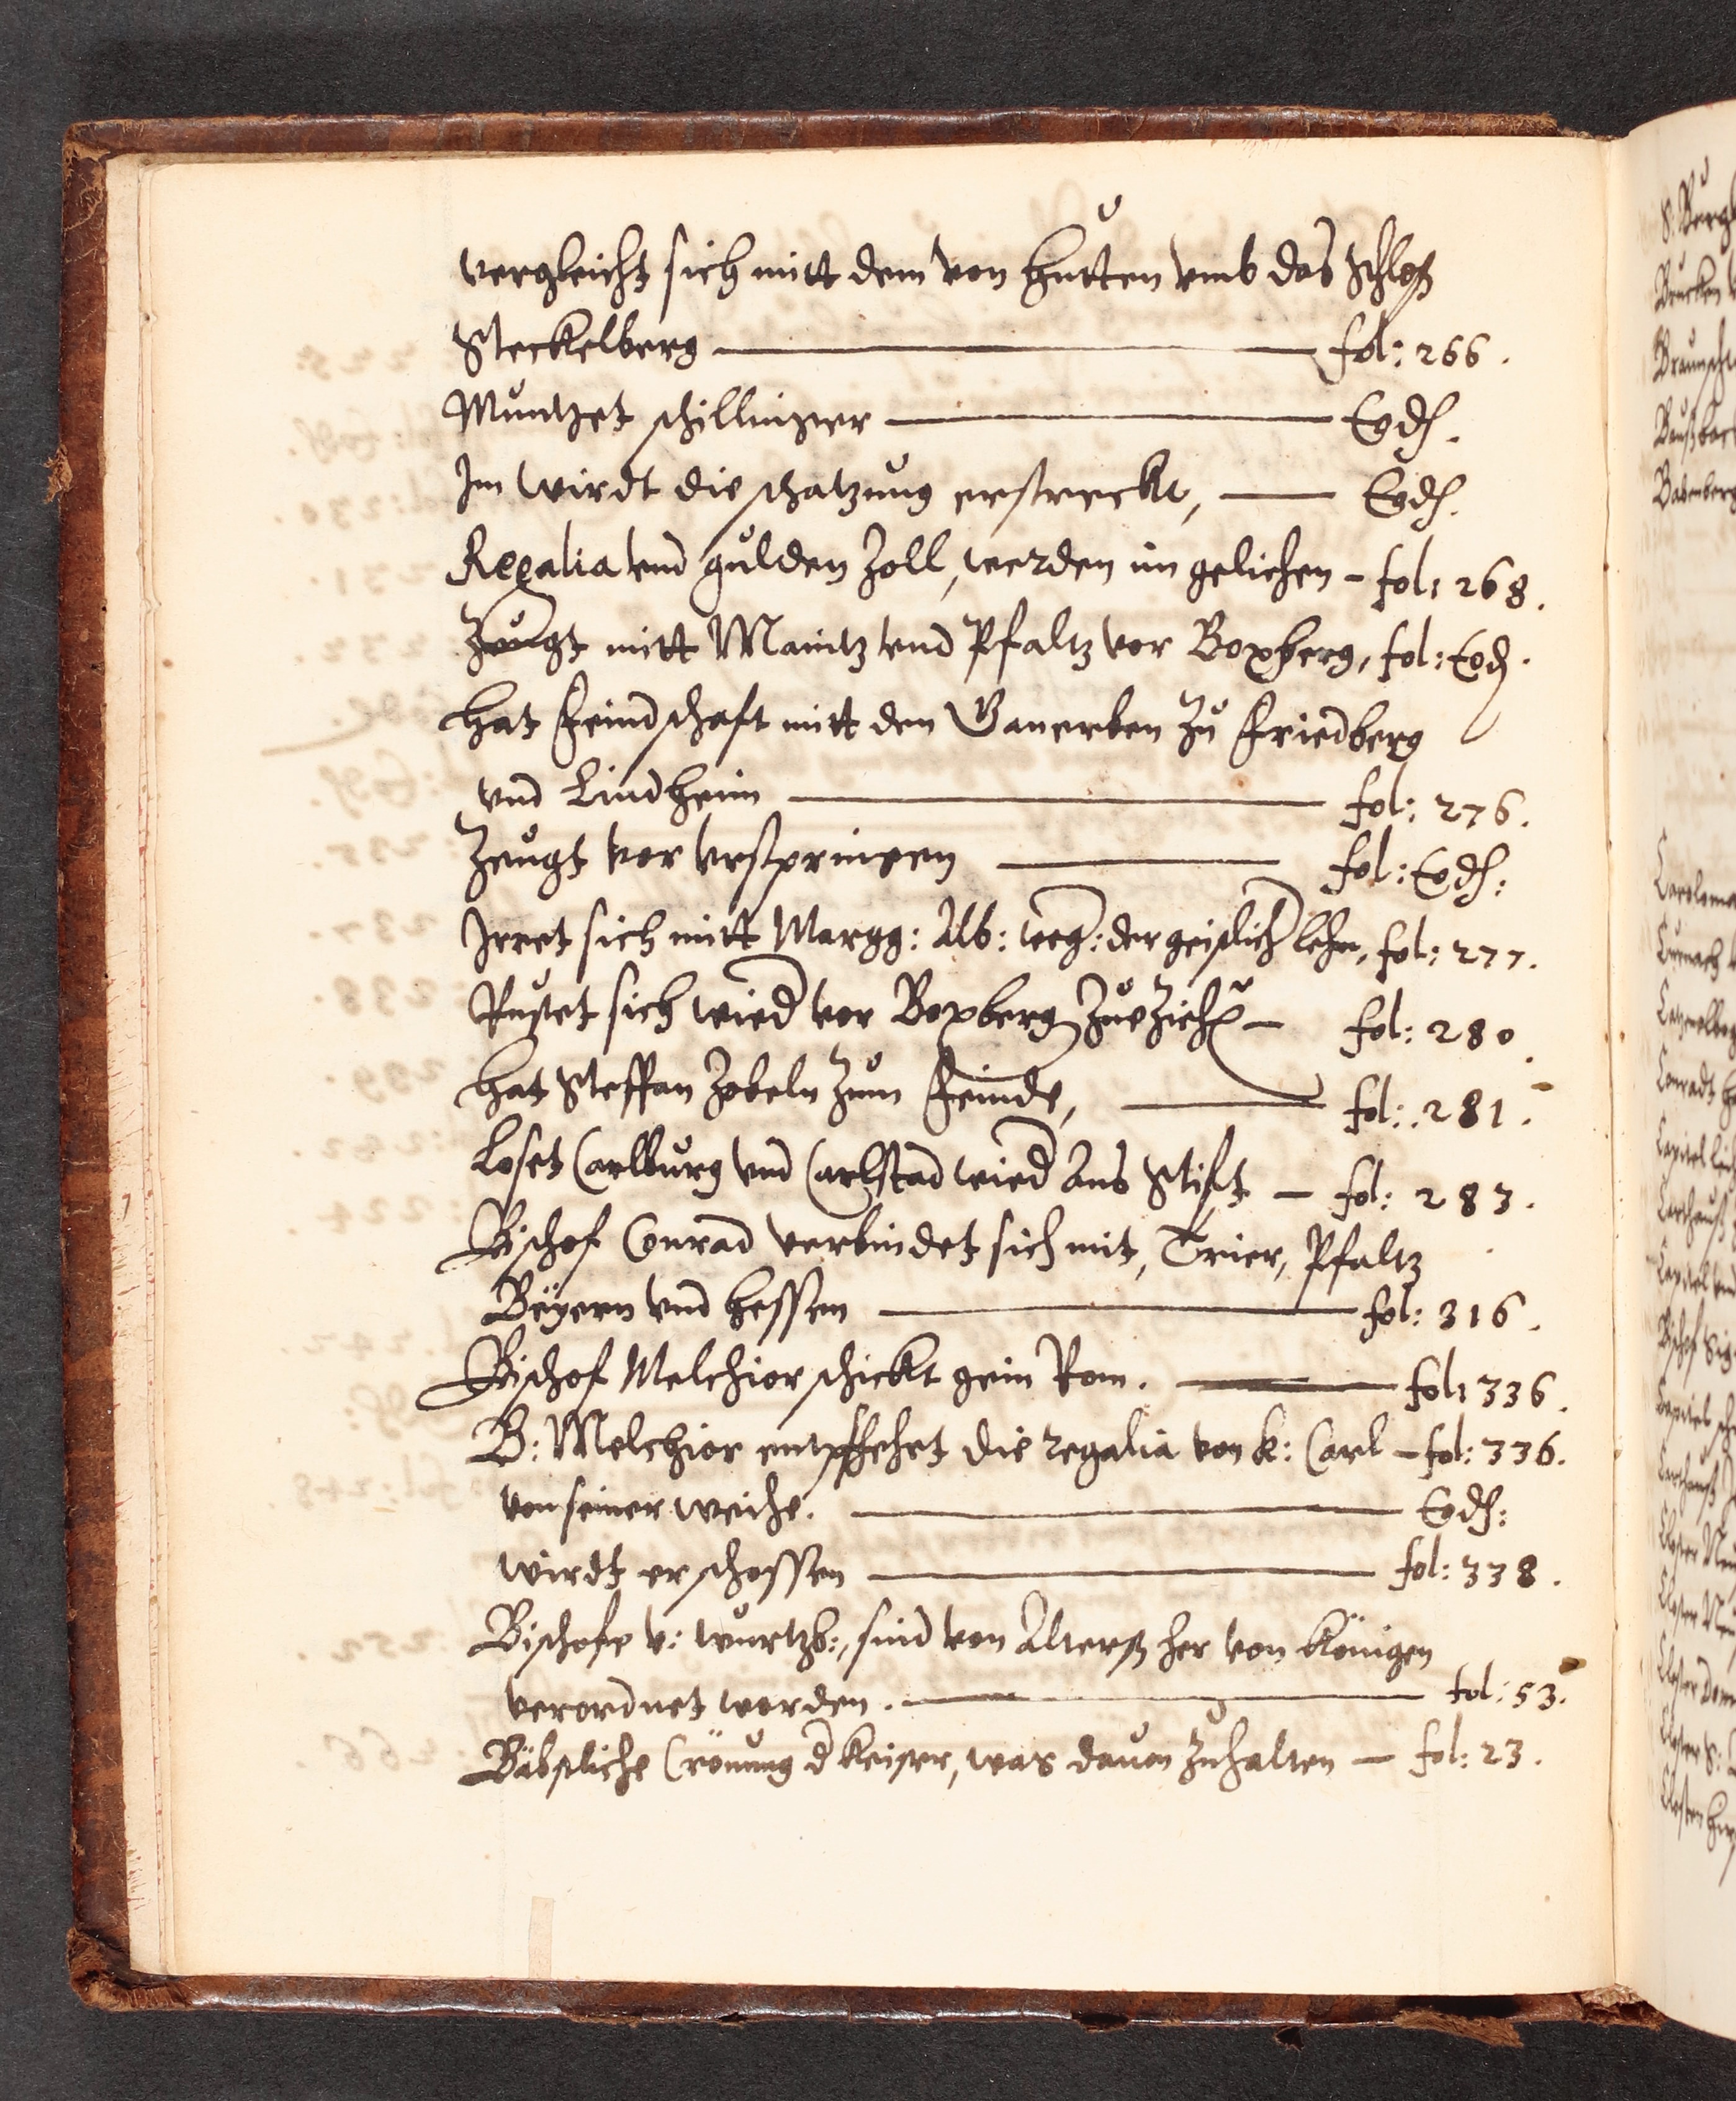 vergleicht sich mitt dem von Hutten vmb das Schloß
Steckelberg — fol: 266.
Muntzet schillinger — Eod.
Im wirdt die schatzung erstreckt, — Eod.
Regalia vnd gulden Zoll, werden im gelichen – fol: 268.
Zeugt mitt Maintz vnd Pfaltz vor Boxberg, fol: Eod.
Hat Feindschaft mitt den Ganerben zu Friedberg
vnd Lindheim — fol: 276.
Zeugt vor Vrspringen — fol: Eod:
Irret sich mitt Margg: Alb: weg: der geistlich lehn, fol: 277.
Rustet sich wied vor Boxberg zue Ziehen – fol: 280.
Hat Steffan Zobeln zum Feinde, — fol: 281.
Loset Carlburg vnd Carlstad wied Ans Stift – fol: 283.
Bischof Conrad verbindet sich mit, Trier, Pfaltz
Beyern vnd Hessen — fol: 316.
Bischof Melchior schickt gein Rom. — fol: 336.
B: Melchior entpfehet die regalia von k: Carl – fol: 336.
von seiner weihe. — Eod:
wirdt erschossen — fol: 338.
Bischofe v: wurtzb:, sind von Alterß her von Königen
verordnet worden. — fol: 53.
Bäbstliche Crönung d Keiser, was dauon zuhalten – fol: 23.